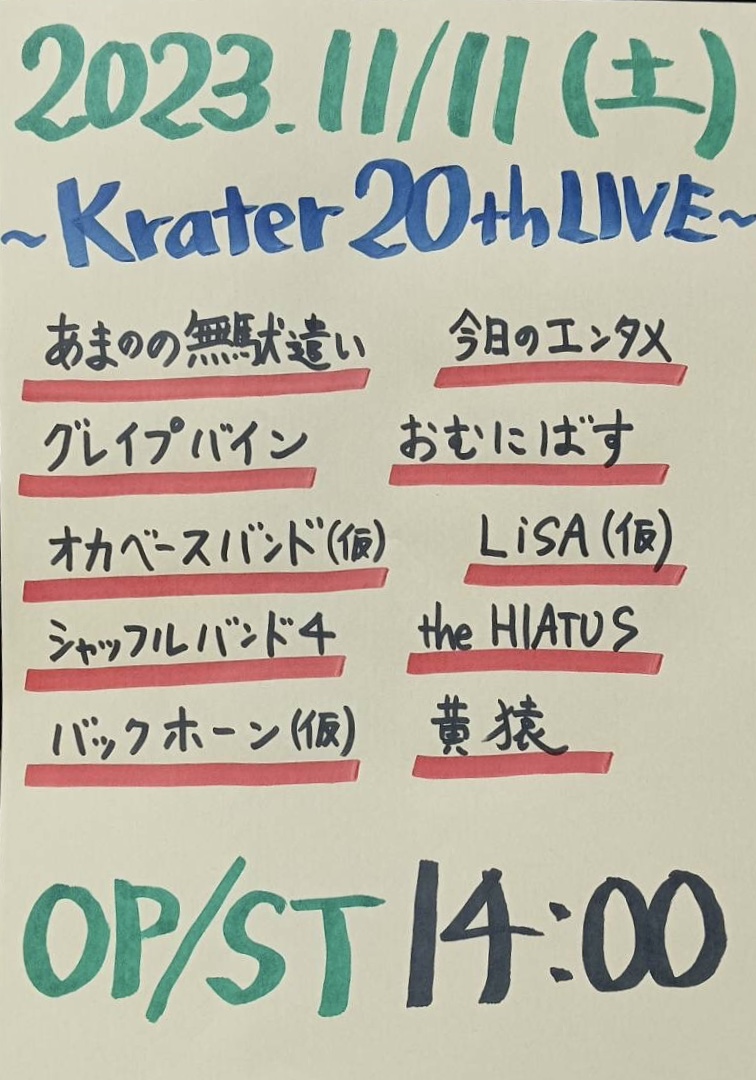 2023.11/11(土)
~Krater 20th LIVE~
あまのの無駄遣い 今日のエンタメ
グレイプバイン おむにばす
オカベースバンド(仮) LiSA(仮)
シャッフルバンド4 the HIATUS
バックホーン(仮) 黄猿
OP/ST 14:00